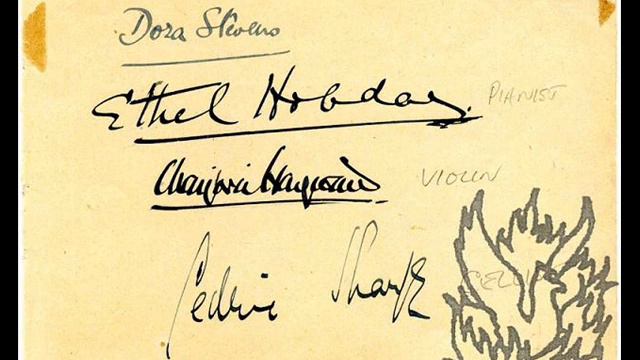 Dora Stevens
Ethel Hobday. PIANIST
Marjorie Hayward VIOLIN
Cedric Sharpe CELLIST